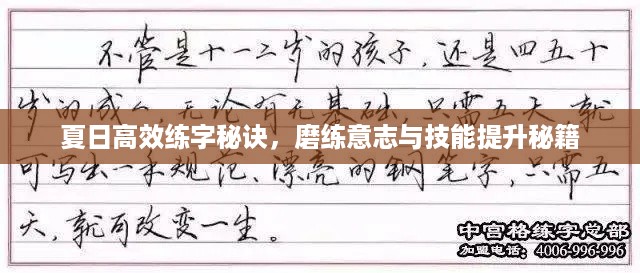 不管是十一二岁的孩子，还是四五十
岁的成人，无论有无基础，只需五天，就
夏日高效练字秘诀，磨练意志与技能提升秘籍
可写出一手规范、漂亮的钢笔字，只需五
天，就可改变一生。
中宫格练字总部
加盟电话：4006-996-996